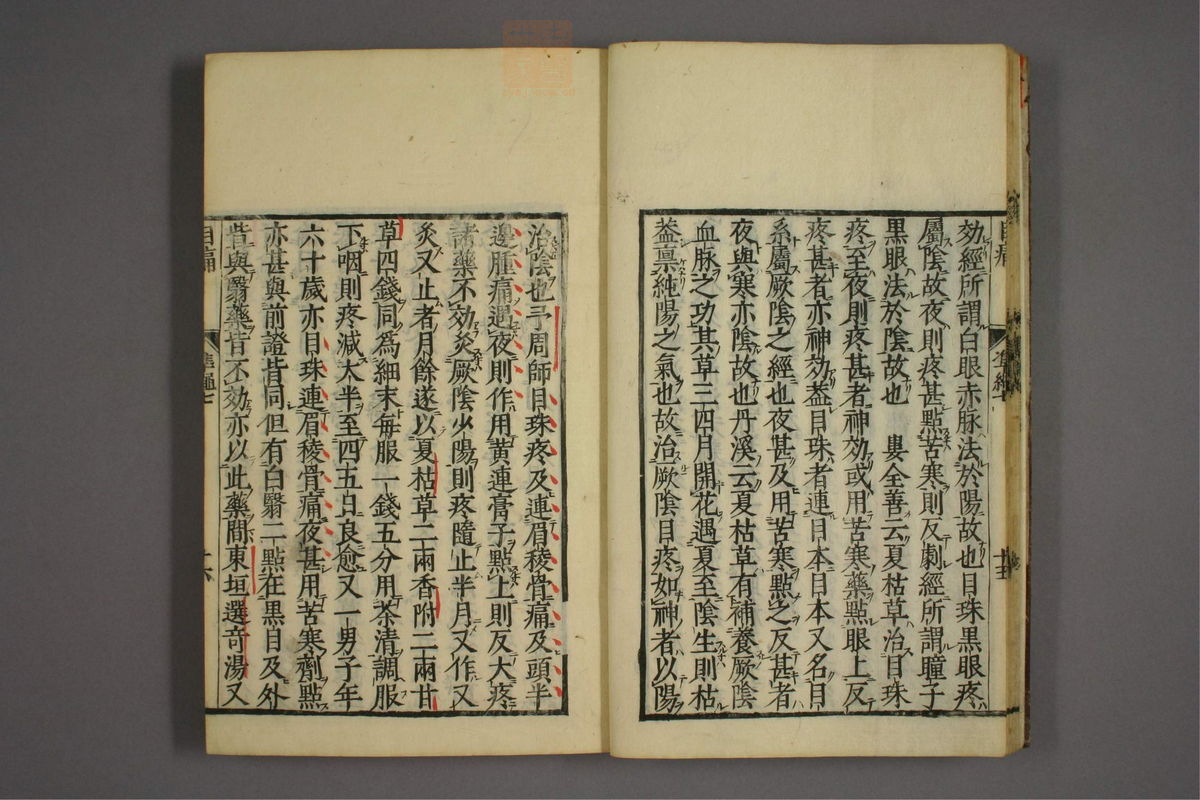 効經所謂白眼赤脉法於陽故也目珠黒眼疼
屬陰故夜則疼甚點苦寒則反劇經所謂瞳子
黒眼法於陰故也　婁全善云夏枯草治目珠
疼至夜則疼甚者神効或用苦寒藥點眼上反
疼甚者亦神効葢目珠者連目本目本又名目
系屬厥陰之經也夜甚及用苦寒點之反甚者
夜與寒亦陰故也丹溪云夏枯草有補養厥陰
血脉之功其草三四月開花遇夏至陰生則枯
葢禀純陽之氣也故治厥陰目疼如神者以陽
治陰也予周師目珠疼及連眉稜骨痛及頭半
邊腫痛遇夜則作用黄連膏子點上則反大疼
諸藥不効灸厥陰少陽則疼隨止半月又作又
灸又止者月餘遂以夏枯草二兩香附二兩甘
草四錢同爲細末毎服一錢五分用茶清調服
下咽則疼減大半至四五日良愈又一男子年
六十歲亦目珠連眉稜骨痛夜甚用苦寒劑點
亦甚與前證皆同但有白翳二點在黒目及外
眥與翳藥皆不効亦以此藥間東垣選竒湯又
目痛